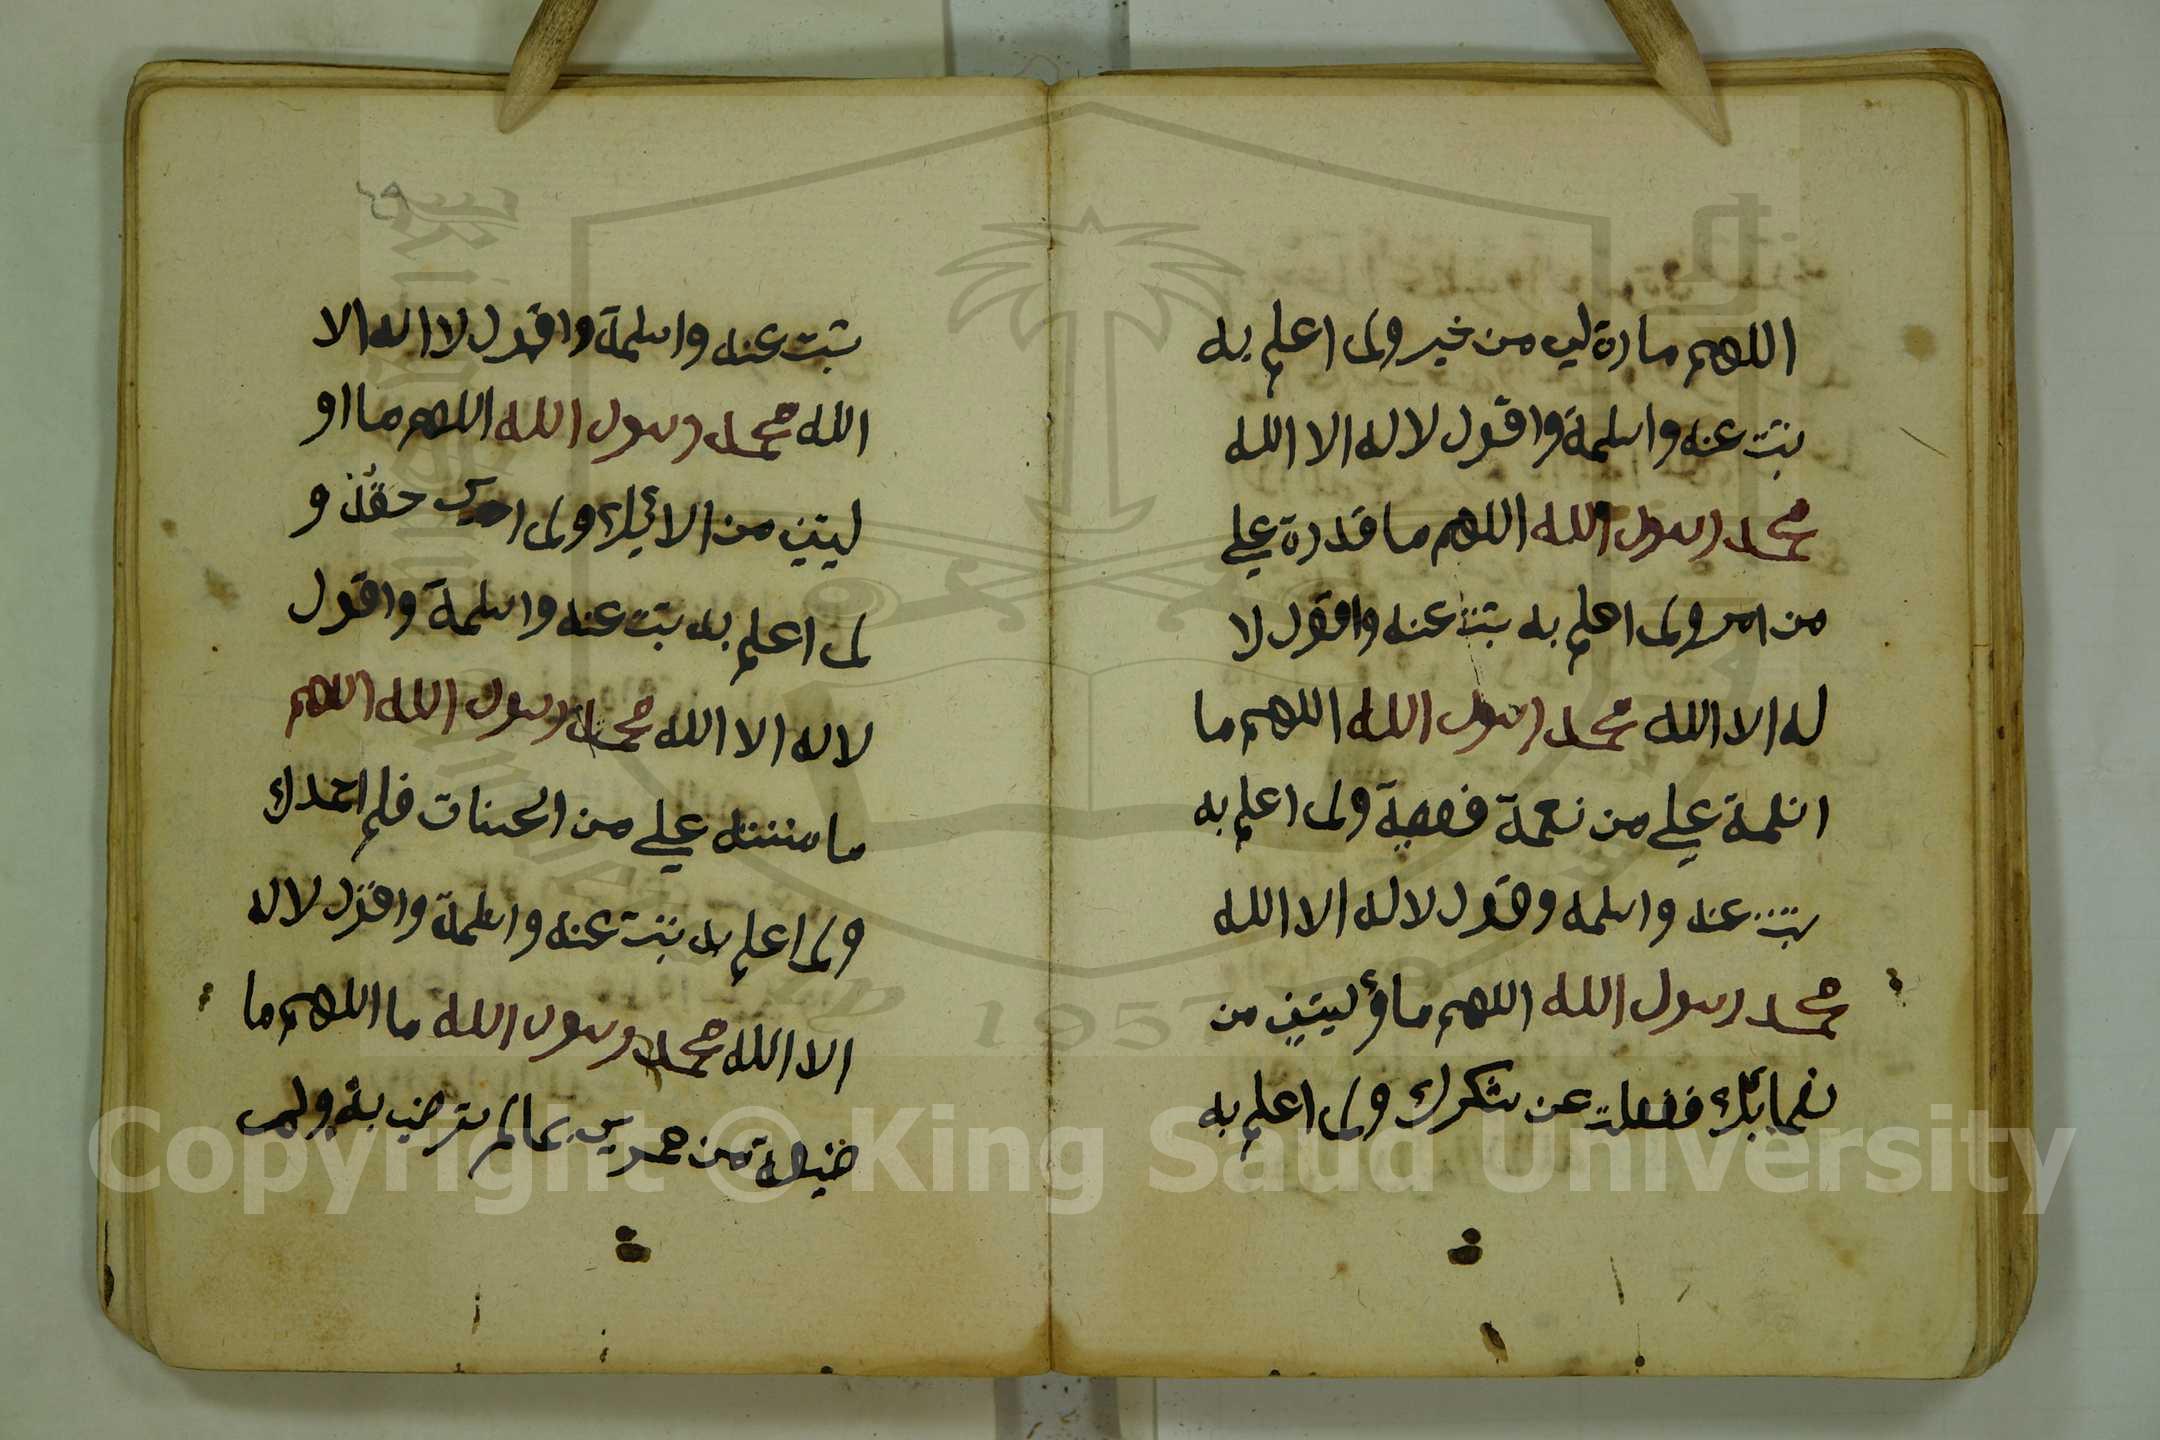 اللهم ما ردة لي من خير ولى اعلم به
بتت عنه واسلمة واقول لا له الا الله
محمد رسول الله اللهم ما قدرة علي
من امر ولى اعلم به بتت عنه واقول لا
له الا الله محمد رسول الله اللهم ما
انلمة علي من نعمة ولى اعلم به
بتت عنه واسلمه وقول لا له الا الله
محمد رسول الله اللهم ما ؤليتني من
نعمائك ففعلت عن شكرك ولى اعلم به
٤٩
تبت عنه واسلمة واقول لا اله الا
الله محمد رسول الله اللهم ما او
ليتني من الائك ولى حقك و
لى اعلم به بتت عنه واسلمة واقول
لا له الا الله محمد رسول الله اللهم
ما مننته علي من الحسنات فلم احمدك
ولى اعلم به بتت عنه واسلمة واقول لا له
الا الله محمد رسول الله ما اللهم ما
من عمري بمالم ترضي به ولم
Copyright © King Saud University
King Saud University
1957